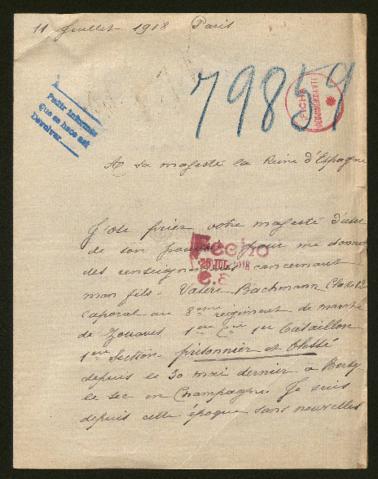 11 Juillet 1918 Paris
79859
FICHA
Pedir informes
Que se hace así
Devolver
A sa majesté la Reine d'Espagne
J'ose prier votre majesté d'user
de son pour me donner
des renseignements concernant
mon fils. Valère Bachmann
caporal au 8ème régiment de marche
de Zouaves 1ère Cie 1er Bataillon
1ère Section prisonnier et blessé
depuis le 30 mai dernier à Berzy
le sec en Champagne Je suis
depuis cette époque sans nouvelles
Fecho
20 JUL. 1918